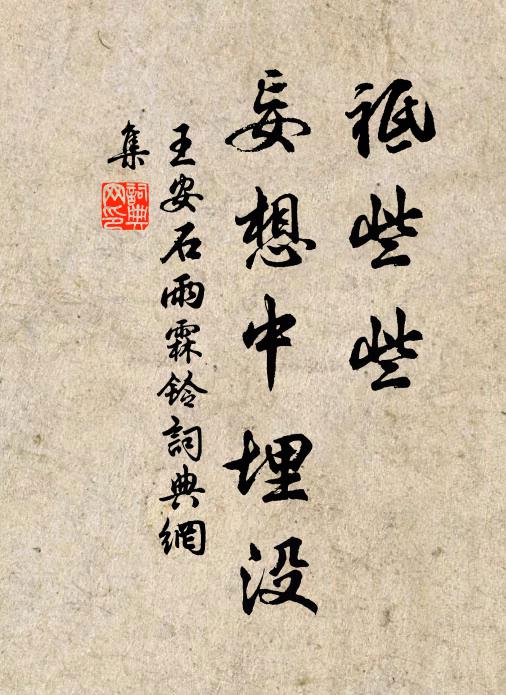 祗些些
妄想中埋没
王安石雨霖鈴詞典網
集
詞典
網印